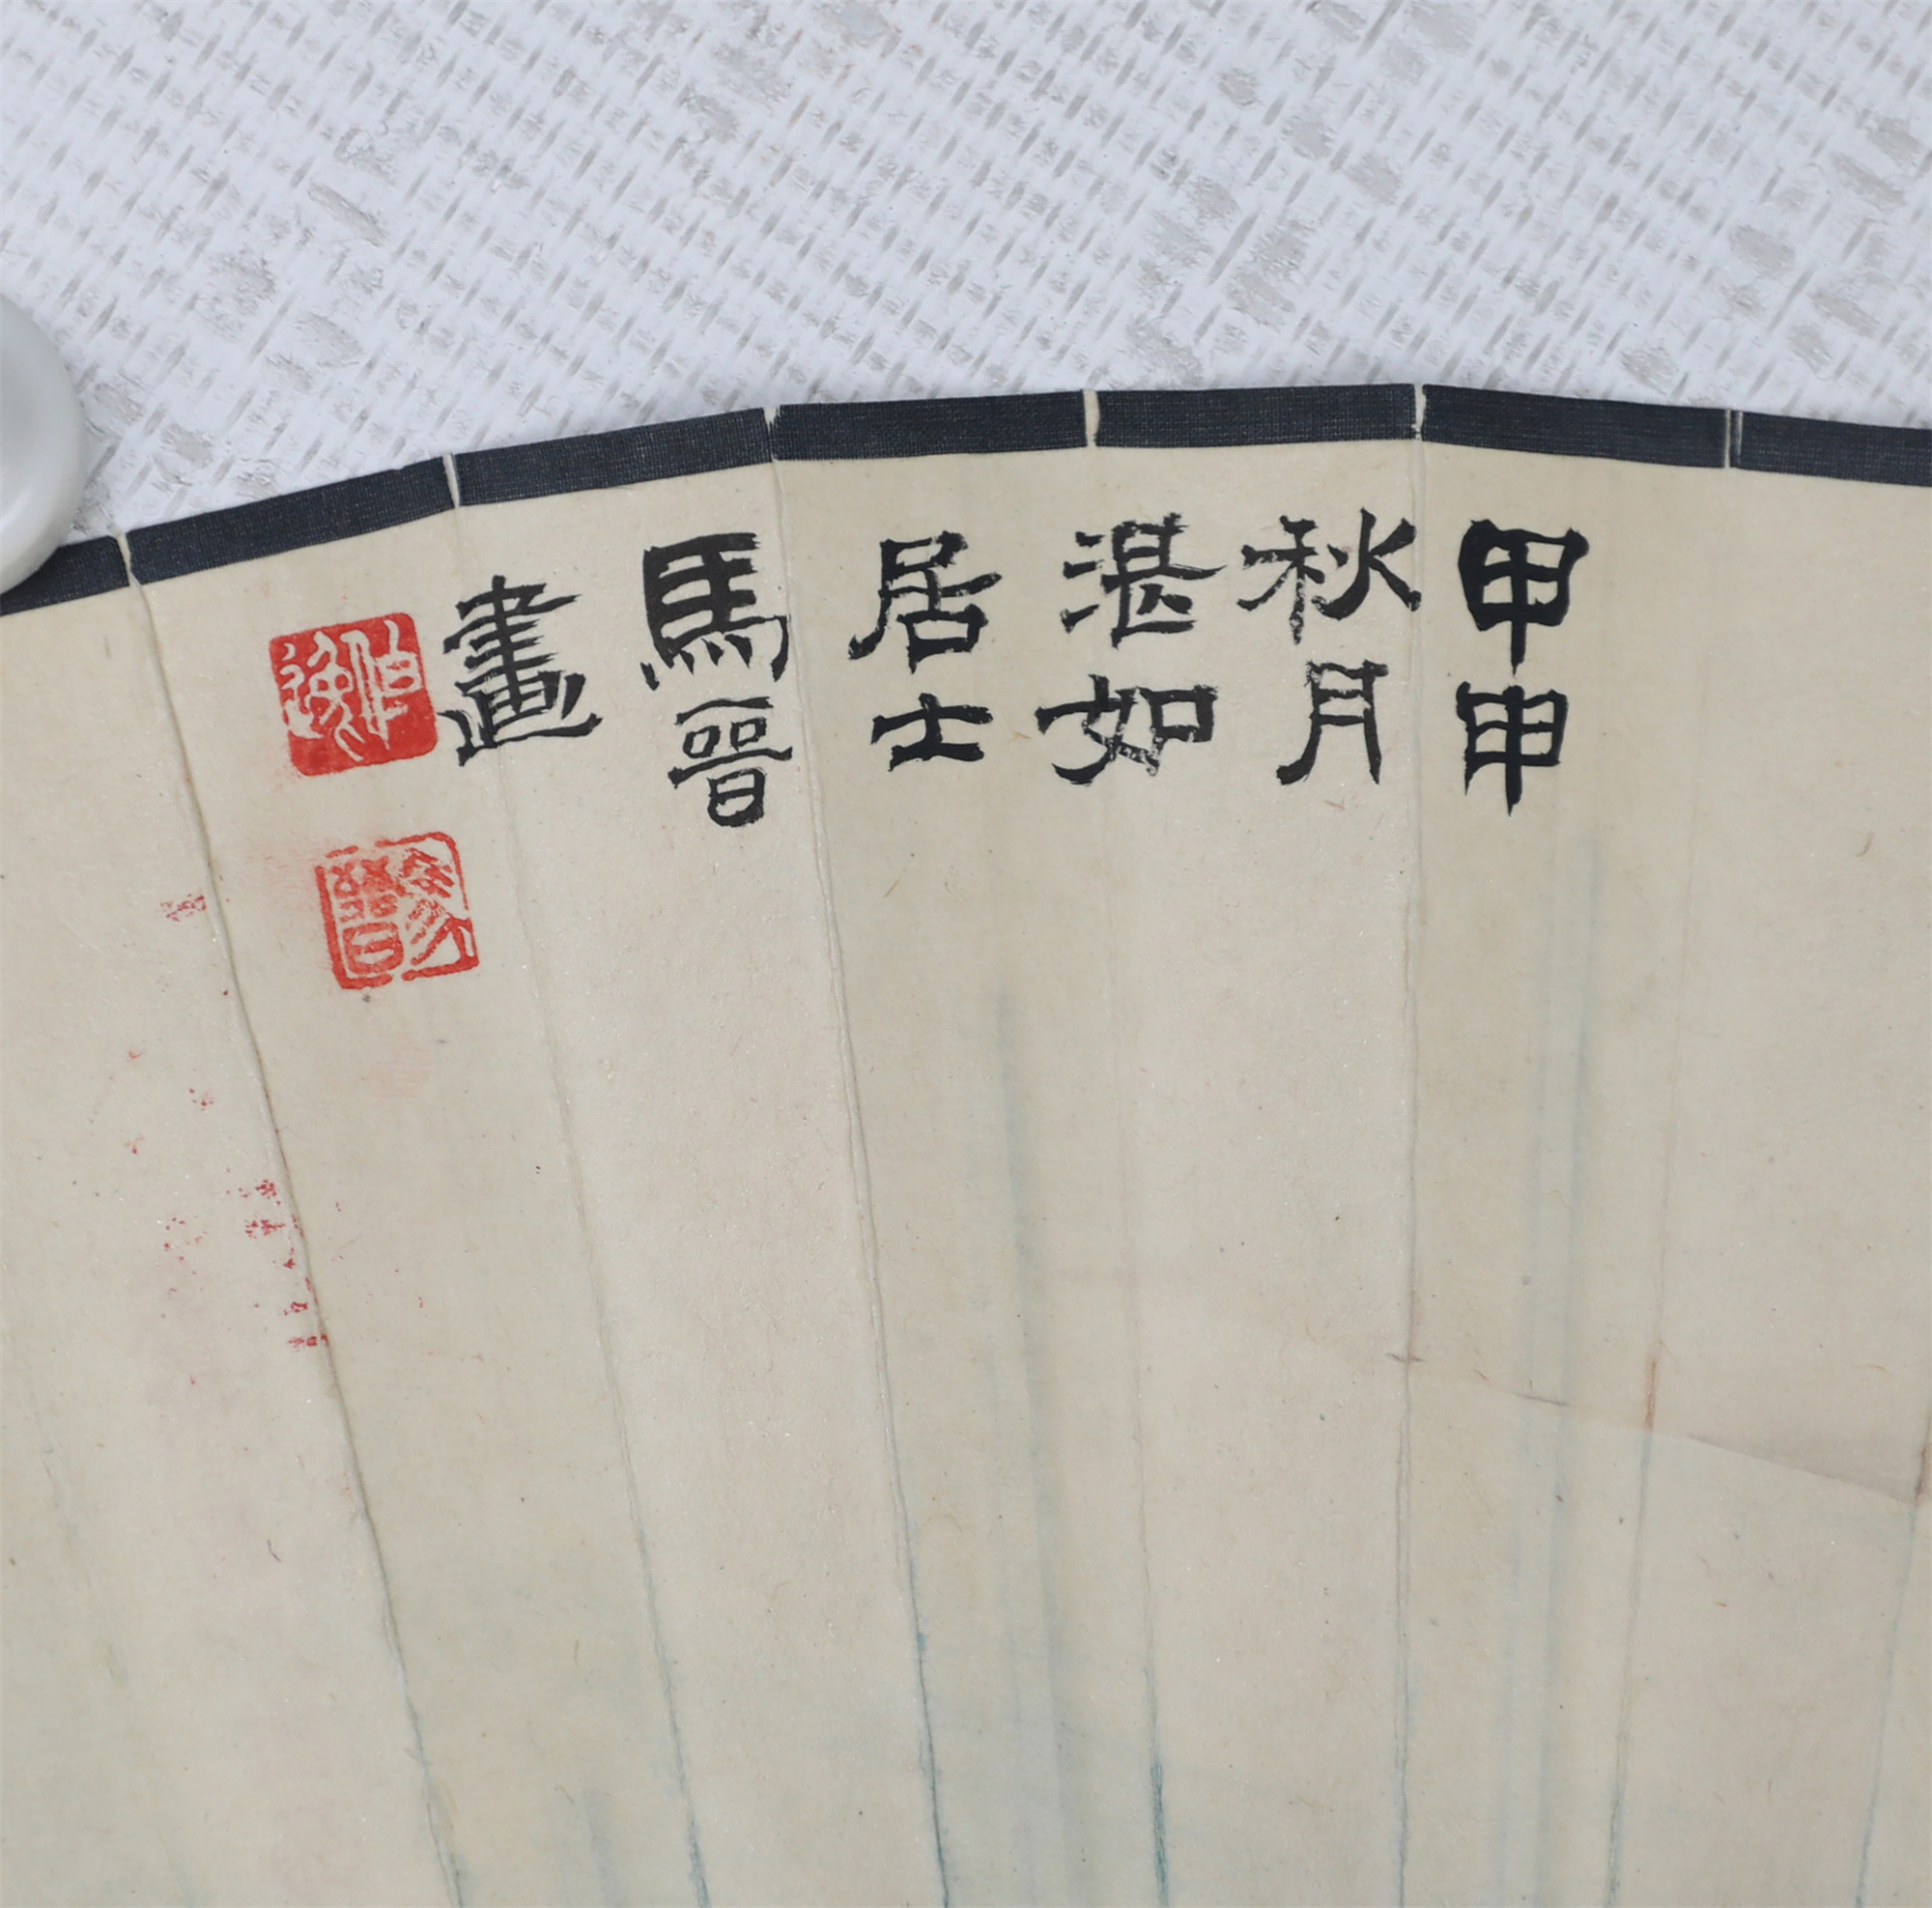 甲申
秋月
湛如
居士
馬晉
畫
伯逸
馬晉